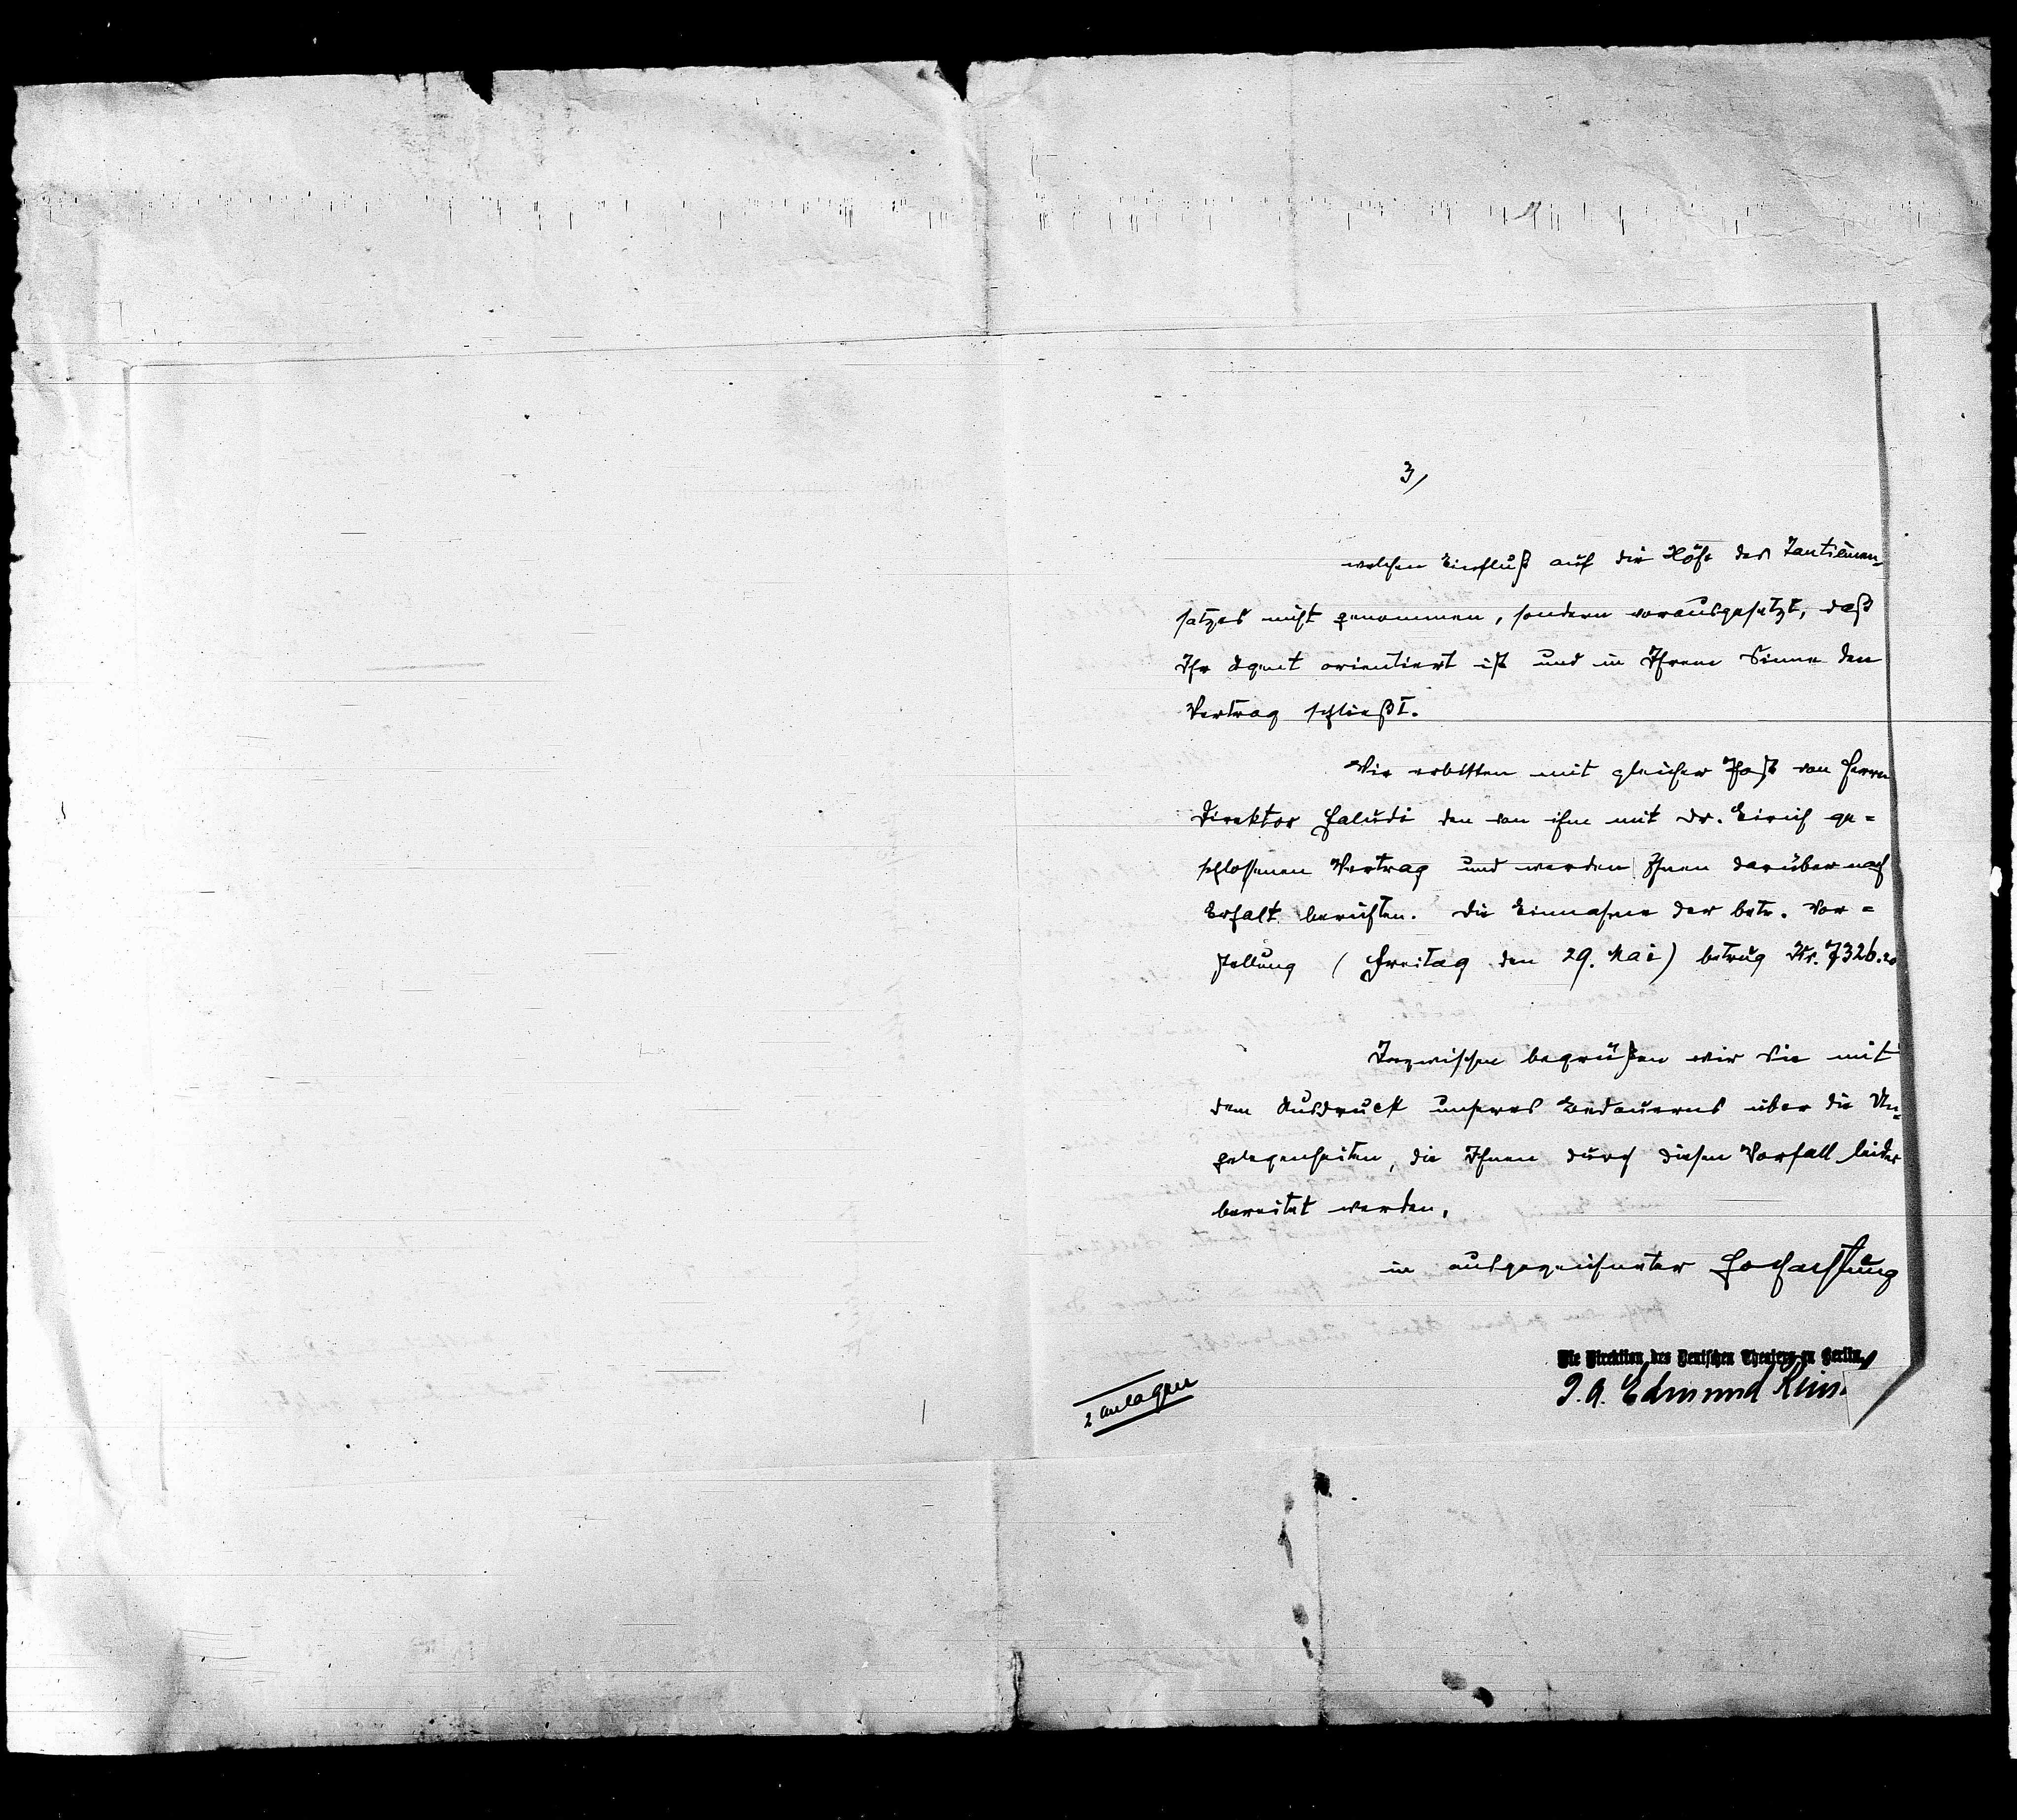 3/
welchen Einfluß auf die Höhe des Tantiemen-
satzes nicht genommen, sondern vorausgesetzt, daß
Ihr Agent orientiert ist und in Ihrem Sinne den
Vertrag schließt.
Wir erbitten mit gleicher Post von Herrn
Direktor Faludi den von ihm mit Dr. Eirich ge=
schlossenen Vertrag und werden Ihnen darüber nach
Erhalt berichten. Die Einnahme der betr. Vor=
stellung (Freitag den 29. Mai) betrug Kr. 7326.20
Inzwischen begrüßen wir Sie mit
dem Ausdruck unseres Bedauerns über die Un-
gelegenheiten, die Ihnen durch diesen Vorfall leider
bereitet werden,
in ausgezeichneter Hochachtung
Die Direktion des Deutschen Theaters zu Berlin
I. A. Edmund
2 Anlagen